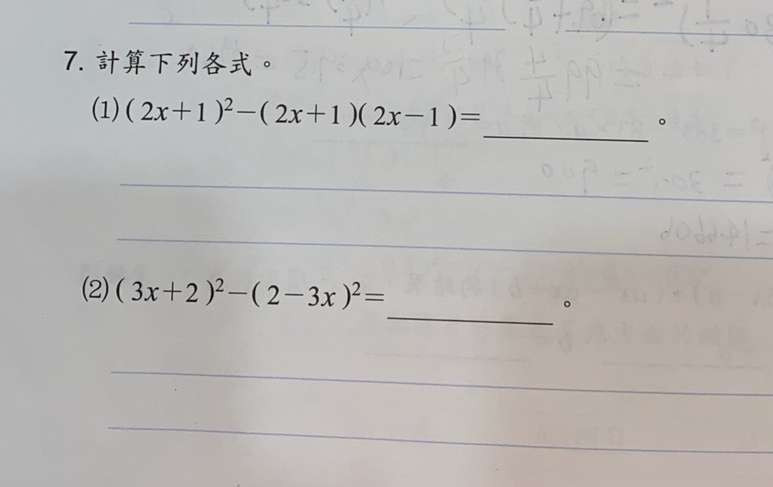 7. 計算下列各式。
(1) ( 2x+1 )²−( 2x+1 )( 2x−1 )=________。
(2) ( 3x+2 )²−( 2−3x )²=________。